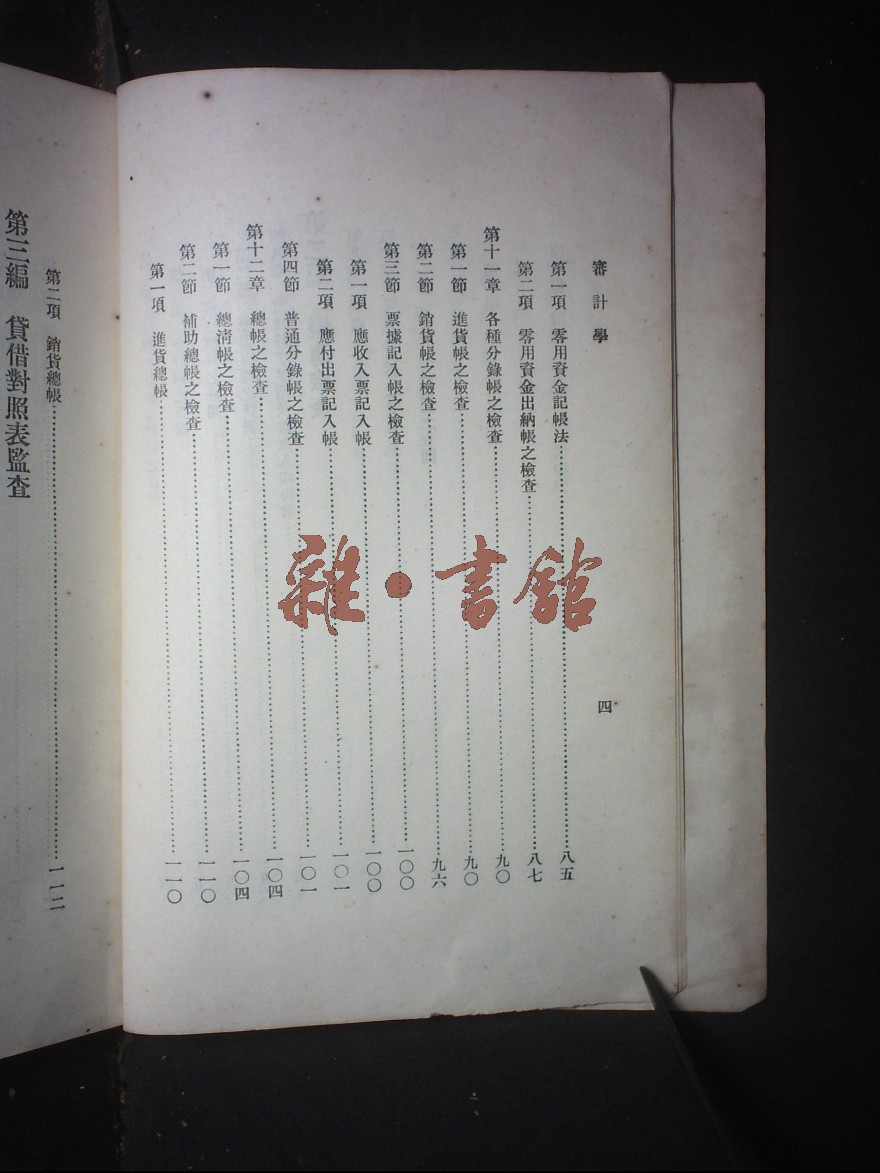 審計學
四
第一項 零用資金記帳法……八五
第二項 零用資金出納帳之檢查……八七
第十一章 各種分錄帳之檢查……九〇
第一節 進貨帳之檢查……九〇
第二節 銷貨帳之檢查……九六
第三節 票據記入帳之檢查……一〇〇
第一項 應收入票記入帳……一〇〇
第二項 應付出票記入帳……一〇一
第四節 普通分錄帳之檢查……一〇一
第十二章 總帳之檢查……一〇四
第一節 總清帳之檢查……一〇四
第二節 補助總帳之檢查……一一〇
第一項 進貨總帳……一一〇
第二項 銷貨總帳……一一二
第三編 貸借對照表監查
雜·書館